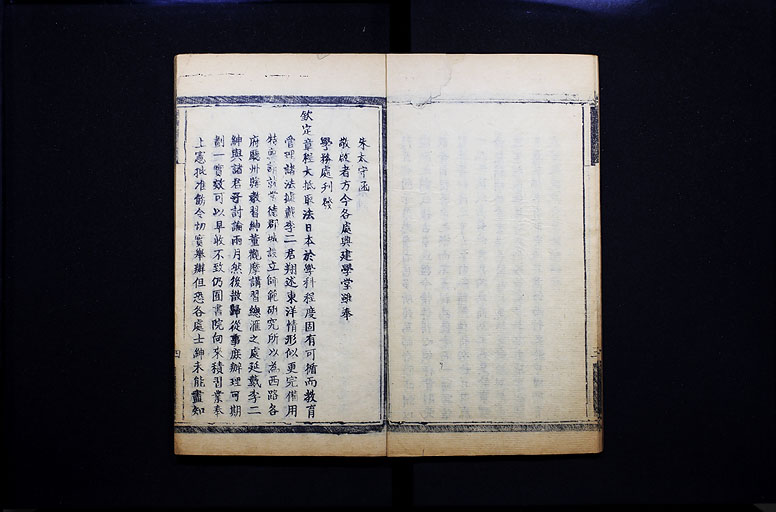 朱太守函
敬啟者方今各處興建學堂雖奉
學務處刊發
欽定章程大抵取法日本於學科程度固有可循而教育
管理諸法據戴李二君翔述東洋情形似更完備用
特與 就 德郡城設立師範研究所以為西路各
府廳州縣教習紳董觀摩講習總滙之處延戴李二
紳與諸君子討論兩月然後散歸從事庶辦理可期
劃一實效可以早收不致仍囿書院向來積習業奉
上憲批准飭令切實舉辦但恐各處士紳未能盡知
四